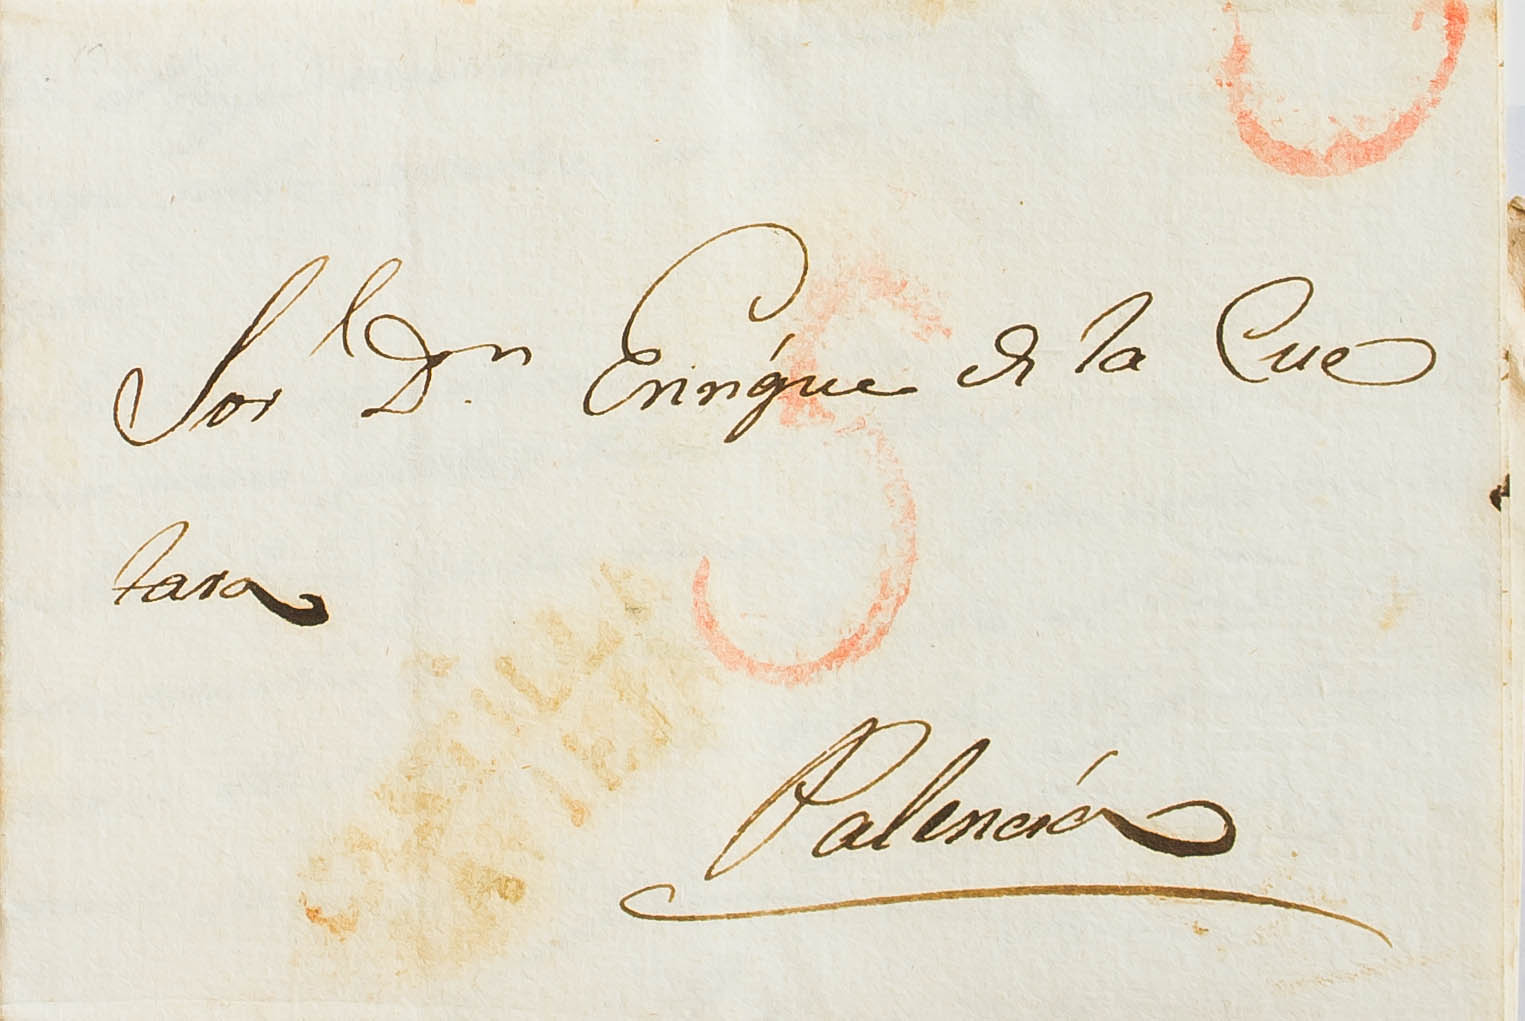 Sor. Dn. Enrrique de la Cue
tara
Palencia